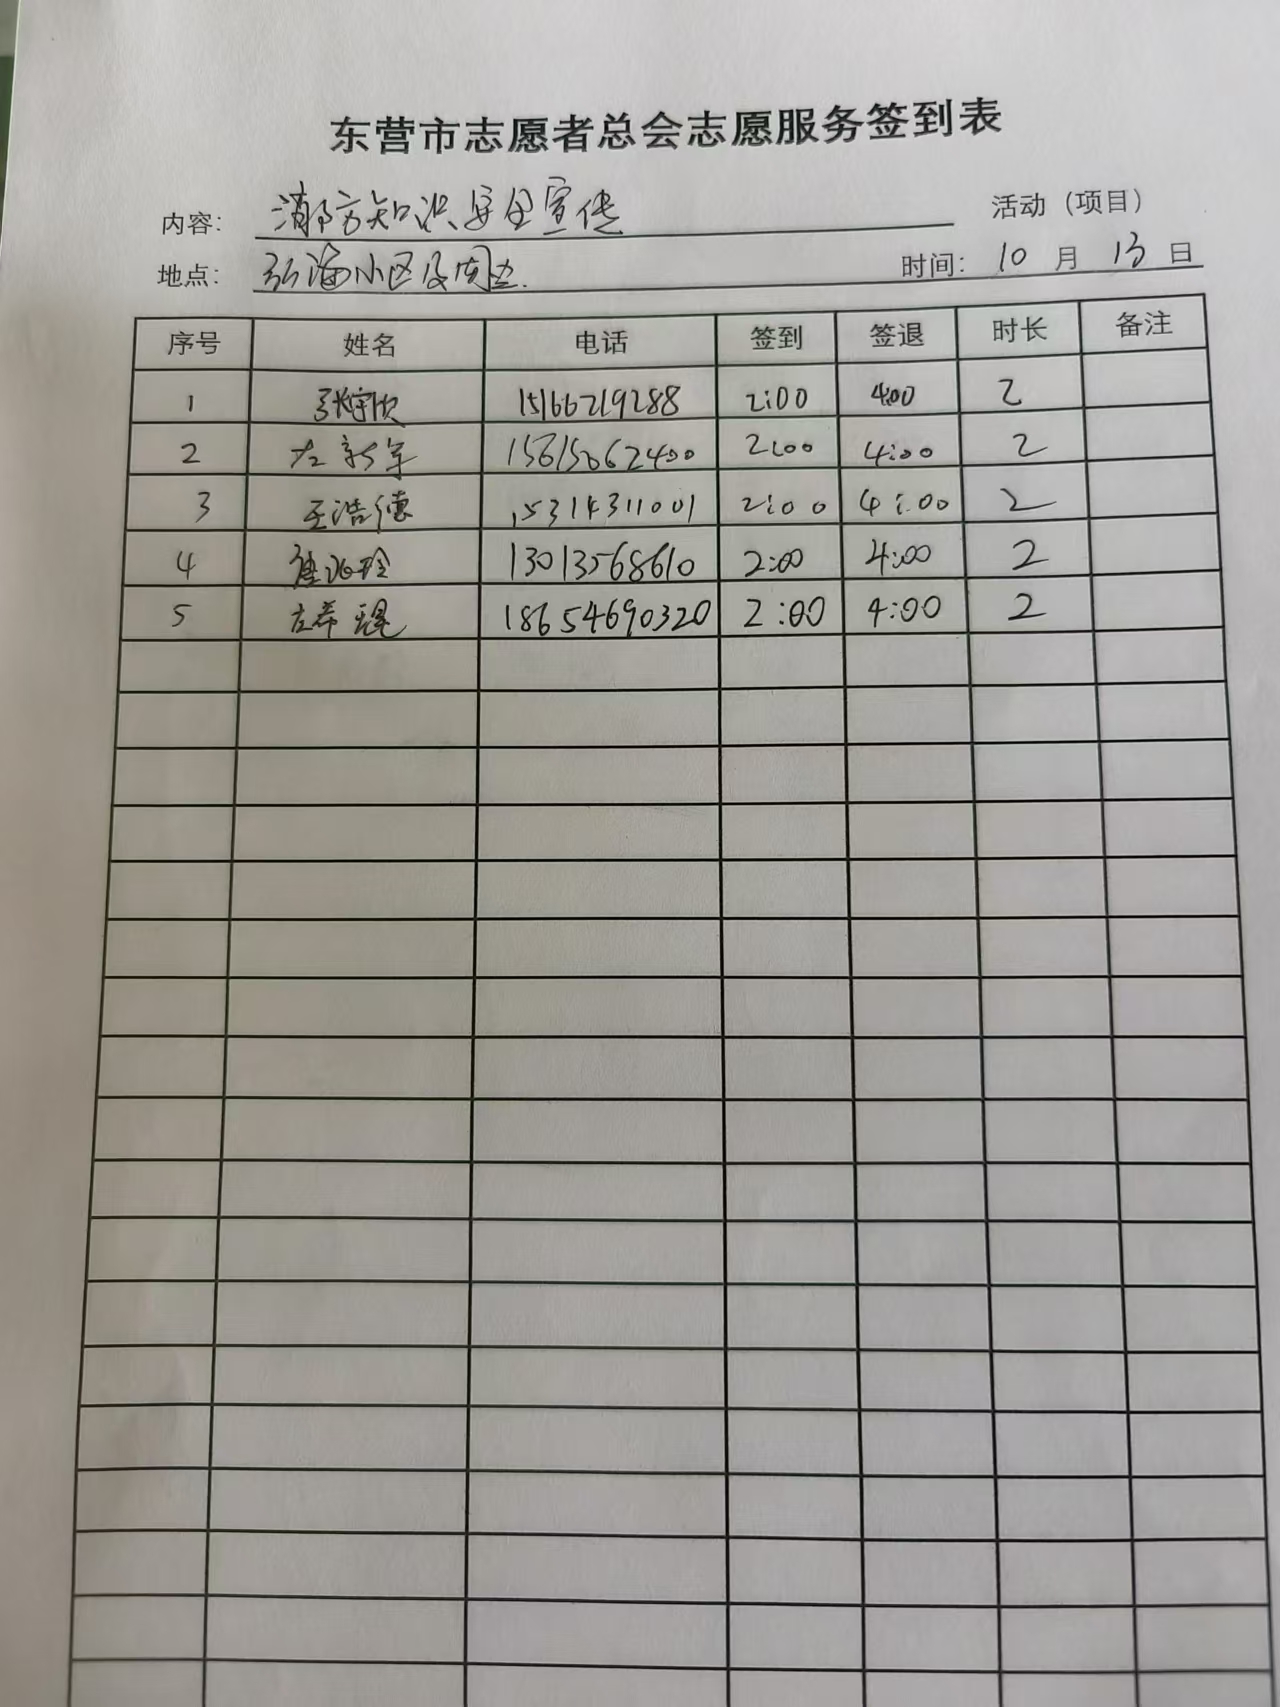 东营市志愿者总会志愿服务签到表
内容： 消防知识安全宣传 活动（项目）
地点： 弘海小区及周边 时间： 10 月 13 日
序号 姓名 电话 签到 签退 时长 备注
1 张宇欣 15166219288 2:00 4:00 2
2 左新军 2:00 4:00 2
3 王浩德 15314311001 2:00 4:00 2
4 13013568610 2:00 4:00 2
5 左希琨 18654690320 2:00 4:00 2